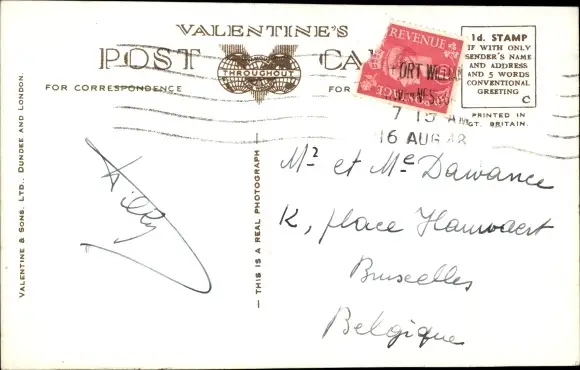 VALENTINE'S
POST CA
THROUGHOUT
FOR CORRESPONDENCE
FOR
REVENUE
FORT WILLIAM
7 15 AM
16 AUG 48
1d. STAMP
IF WITH ONLY
SENDER'S NAME
AND ADDRESS
AND 5 WORDS
CONVENTIONAL
GREETING
C
PRINTED IN
GT. BRITAIN.
VALENTINE & SONS, LTD., DUNDEE AND LONDON.
— THIS IS A REAL PHOTOGRAPH —
Mr et Me Dawance
K, place Hamoaert
Bruxelles
Belgique